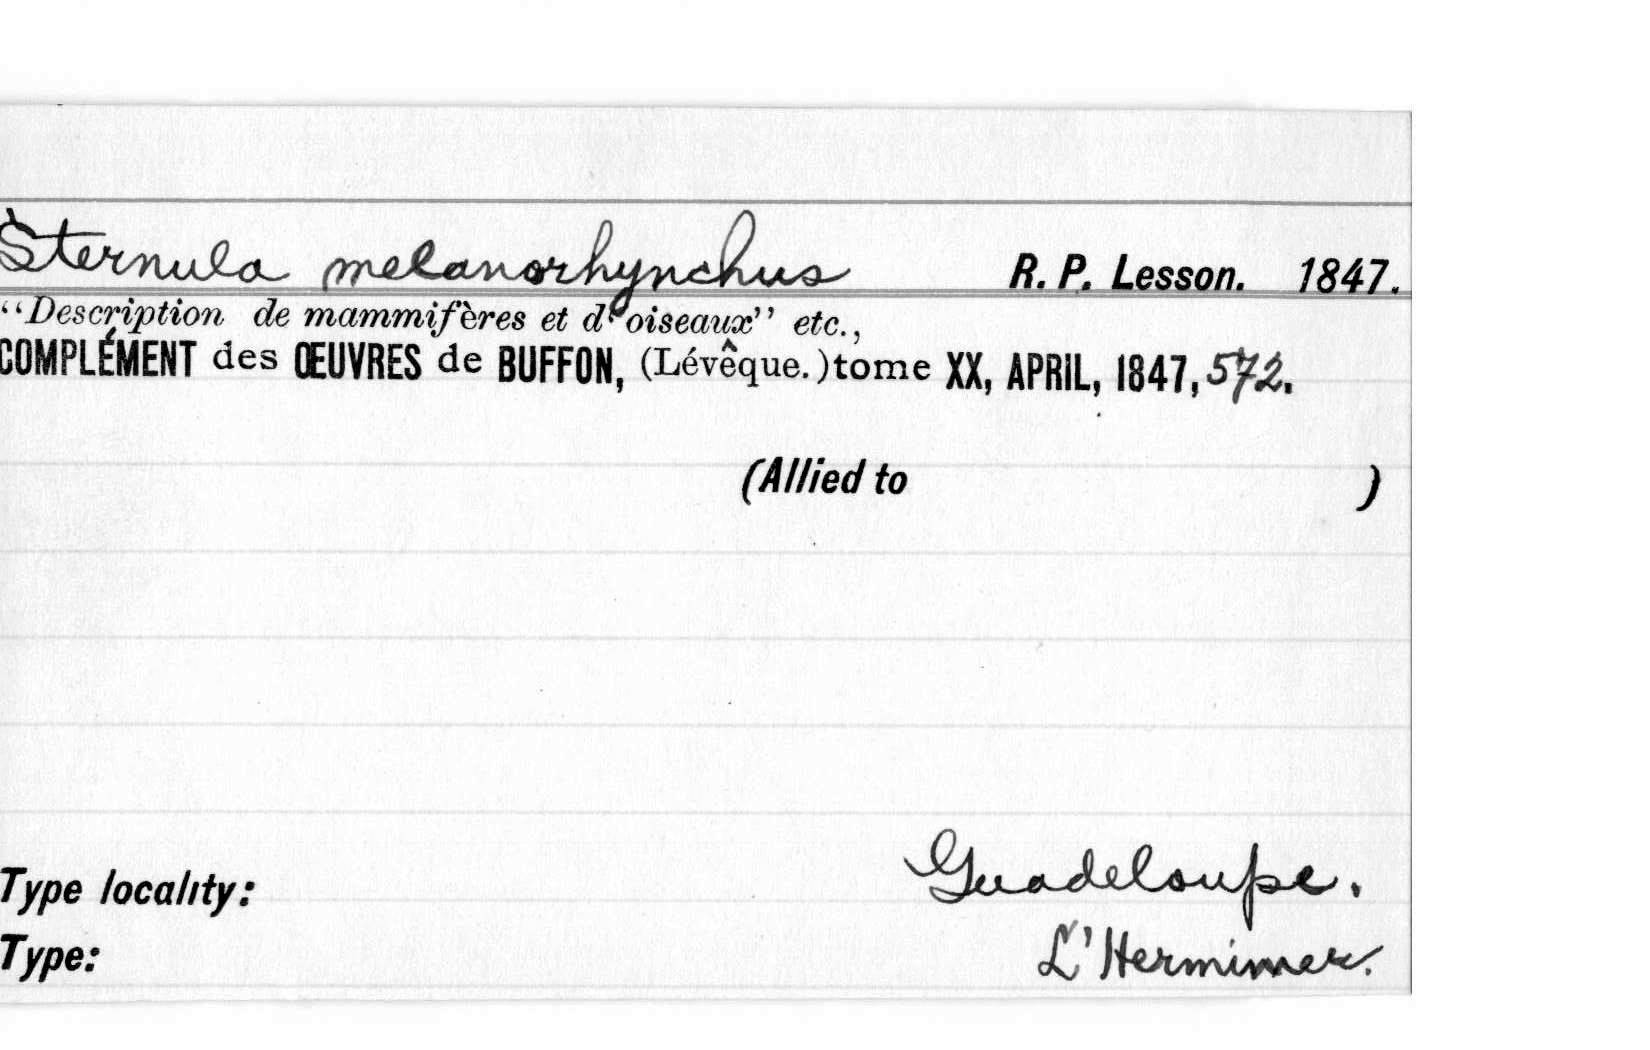 Sternula melanorhynchus R. P. Lesson. 1847.
"Description de mammifères et d'oiseaux" etc.,
COMPLÉMENT des ŒUVRES de BUFFON, (Lévêque.) tome XX, APRIL, 1847, 572.
(Allied to )
Type locality: Guadeloupe.
Type: L'Herminier.